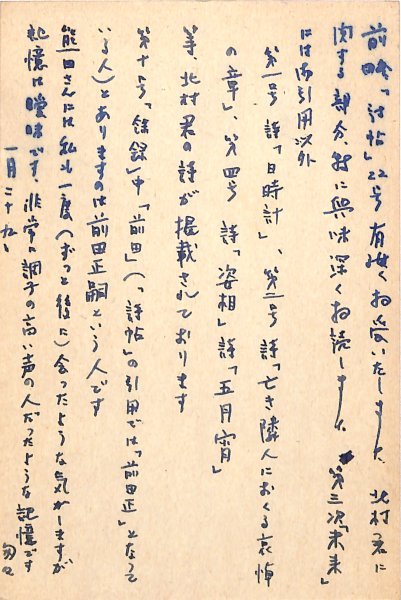 前略「詩帖」22号有難くお受いたしました 北村君に
関する部分、特に興味深くお読しました 第三次「未来」
には御引用以外
第一号 詩「日時計」、第二号 詩「亡き隣人におくる哀悼
の章」、第四号 詩「姿相」詩「五月宵」
等、北村君の詩が掲載されております
第十号「録」中「前田」(「詩帖」の引用では「前田正」となって
いる人)とありますのは前田正嗣という人です
熊田さんには私も一度(ずっと後に)会ったような気がしますが
記憶は曖昧です、非常に調子の高い声の人だったような記憶です
一月二十九日 匆々